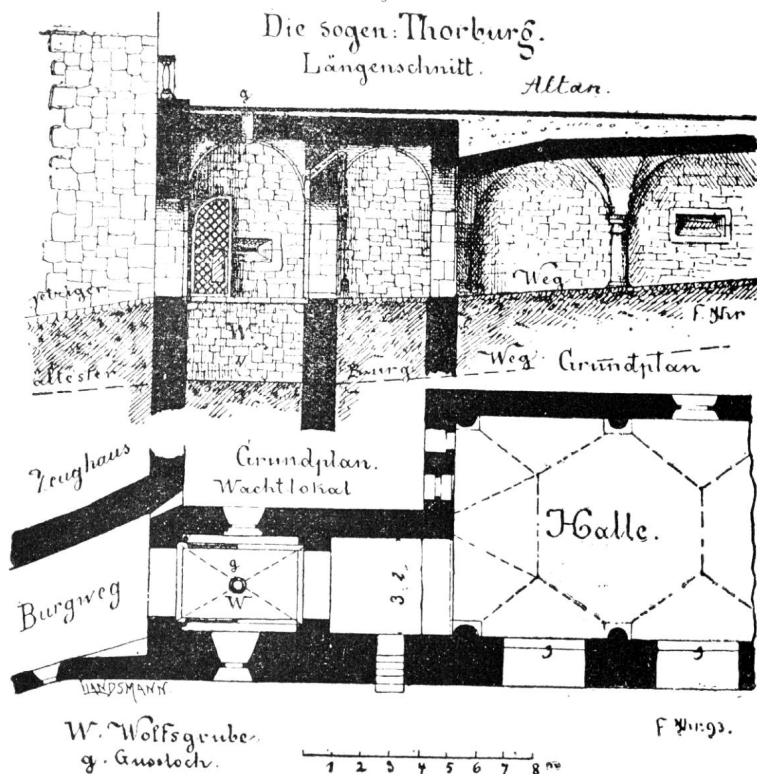 Die sogen: Thorburg.
Längenschnitt.
Altan.
g
jetziger
Weg
W
ältester
Burg
Weg
Grundplan
Zeughaus
Grundplan.
Wachtlokal
Halle.
g
W
Burgweg
LANDSMANN
W. Wolfsgrube.
g. Gussloch.
1 2 3 4 5 6 7 8 m